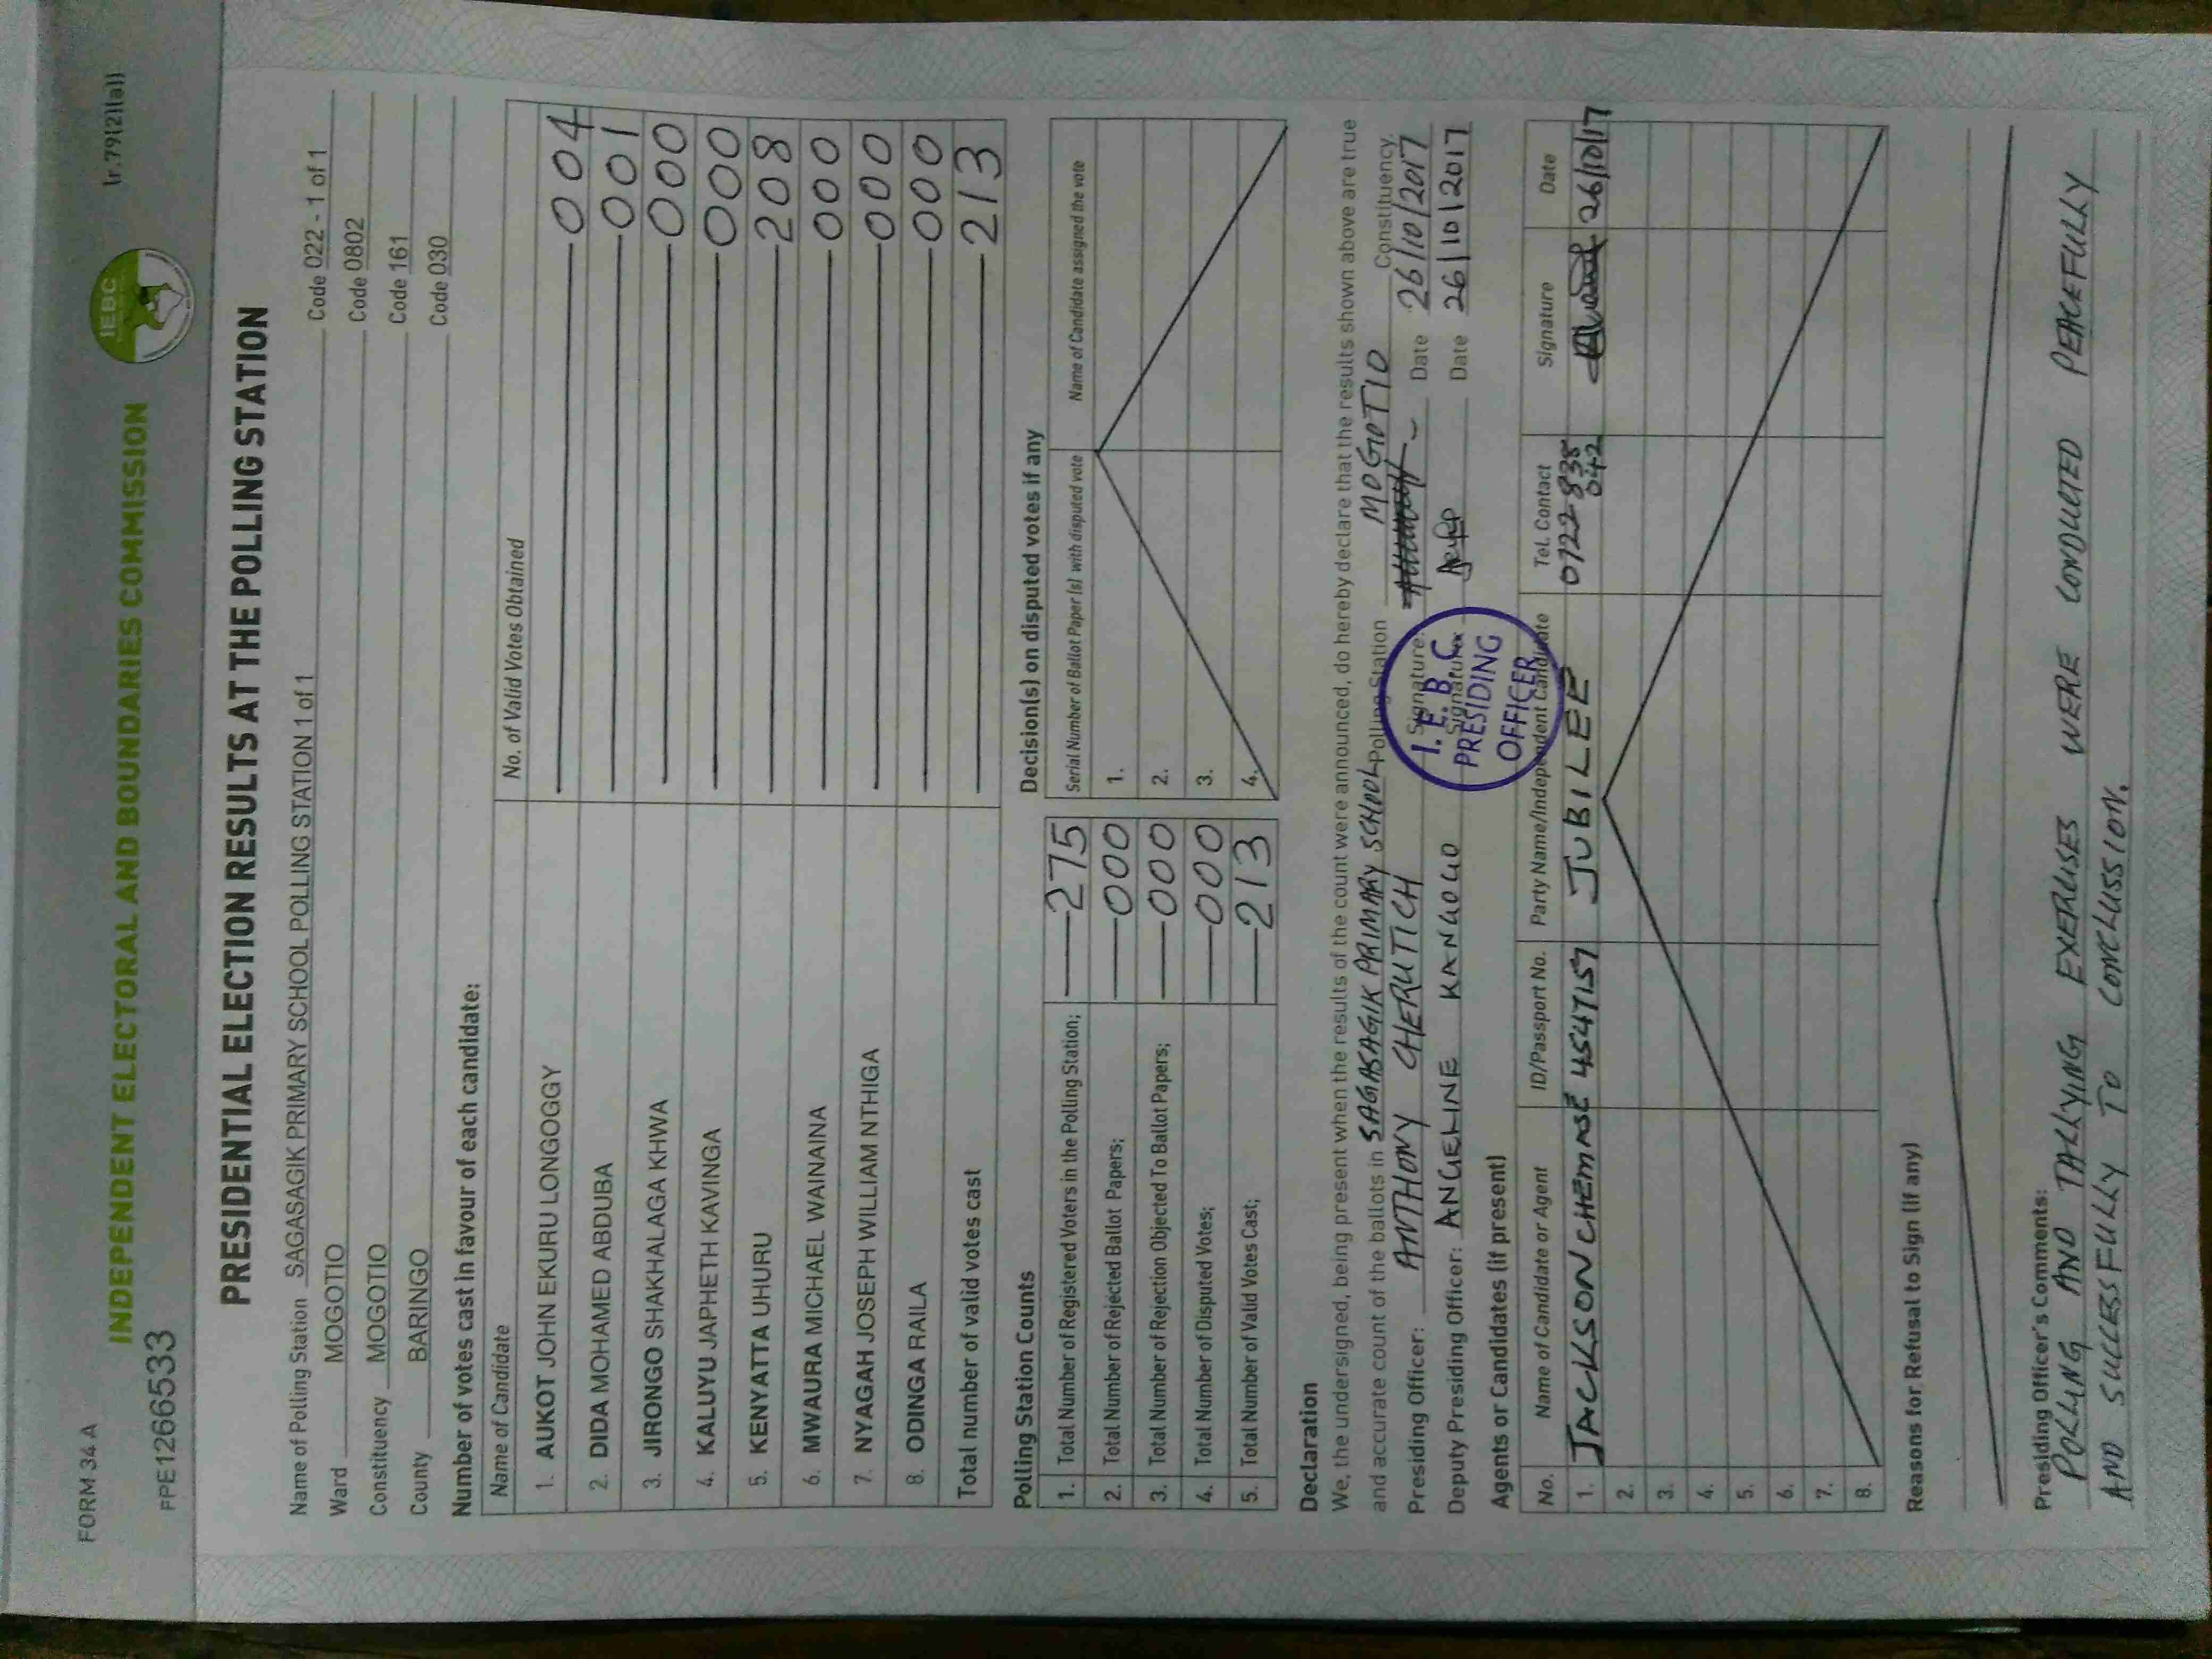 FORM 34 A
(r.79(2)(a))
IEBC
INDEPENDENT ELECTORAL AND BOUNDARIES COMMISSION
FPE1266533
PRESIDENTIAL ELECTION RESULTS AT THE POLLING STATION
Name of Polling Station SAGASAGIK PRIMARY SCHOOL POLLING STATION 1 of 1 Code 022 - 1 of 1
Ward MOGOTIO Code 0802
Constituency MOGOTIO Code 161
County BARINGO Code 030
Number of votes cast in favour of each candidate:
Name of Candidate No. of Valid Votes Obtained
1. AUKOT JOHN EKURU LONGOGGY 004
2. DIDA MOHAMED ABDUBA 001
3. JIRONGO SHAKHALAGA KHWA 000
4. KALUYU JAPHETH KAVINGA 000
5. KENYATTA UHURU 208
6. MWAURA MICHAEL WAINAINA 000
7. NYAGAH JOSEPH WILLIAM NTHIGA 000
8. ODINGA RAILA 000
Total number of valid votes cast 213
Polling Station Counts
1. Total Number of Registered Voters in the Polling Station; 275
2. Total Number of Rejected Ballot Papers; 000
3. Total Number of Rejection Objected To Ballot Papers; 000
4. Total Number of Disputed Votes; 000
5. Total Number of Valid Votes Cast; 213
Decision(s) on disputed votes if any
Serial Number of Ballot Paper (s) with disputed vote Name of Candidate assigned the vote
1.
2.
3.
4.
Declaration
We, the undersigned, being present when the results of the count were announced, do hereby declare that the results shown above are true
and accurate count of the ballots in SAGASAGIK PRIMARY SCHOOL Polling Station MOGOTIO Constituency.
Presiding Officer: ANTHONY CHERUTICH Signature: Date 26/10/2017
Deputy Presiding Officer: ANGELINE KANGOGO Signature: Date 26/10/2017
I.E.B.C
PRESIDING
OFFICER
Agents or Candidates (if present)
No. Name of Candidate or Agent ID/Passport No. Party Name/Independent Candidate Tel. Contact Signature Date
1. JACKSON CHEMASE 4547157 JUBILEE 0722 835 042 26/10/17
2.
3.
4.
5.
6.
7.
8.
Reasons for Refusal to Sign (if any)
Presiding Officer's Comments:
POLLING AND TALLYING EXERCISES WERE CONDUCTED PEACEFULLY
AND SUCCESSFULLY TO CONCLUSSION.